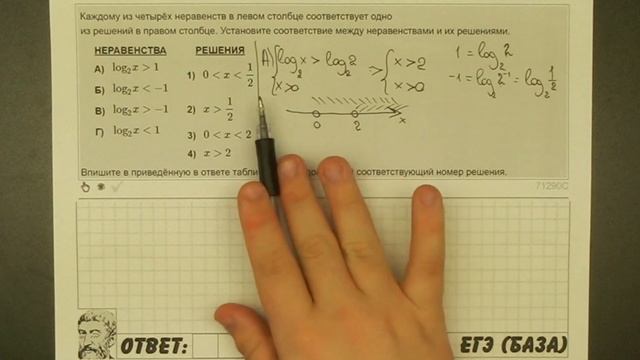 Каждому из четырёх неравенств в левом столбце соответствует одно
из решений в правом столбце. Установите соответствие между неравенствами и их решениями.
НЕРАВЕНСТВА РЕШЕНИЯ
А) log₂x > 1
Б) log₂x < −1
В) log₂x > −1
Г) log₂x < 1
1) 0 < x < 1/2
2) x > 1/2
3) 0 < x < 2
4) x > 2
А) { log₂x > log₂2 => { x > 2
x > 0 x > 0
0 2 x
1 = log₂2
−1 = log₂2⁻¹ = log₂1/2
Впишите в приведённую в ответе соответствующий номер решения.
71290C
ОТВЕТ: ЕГЭ (БАЗА)